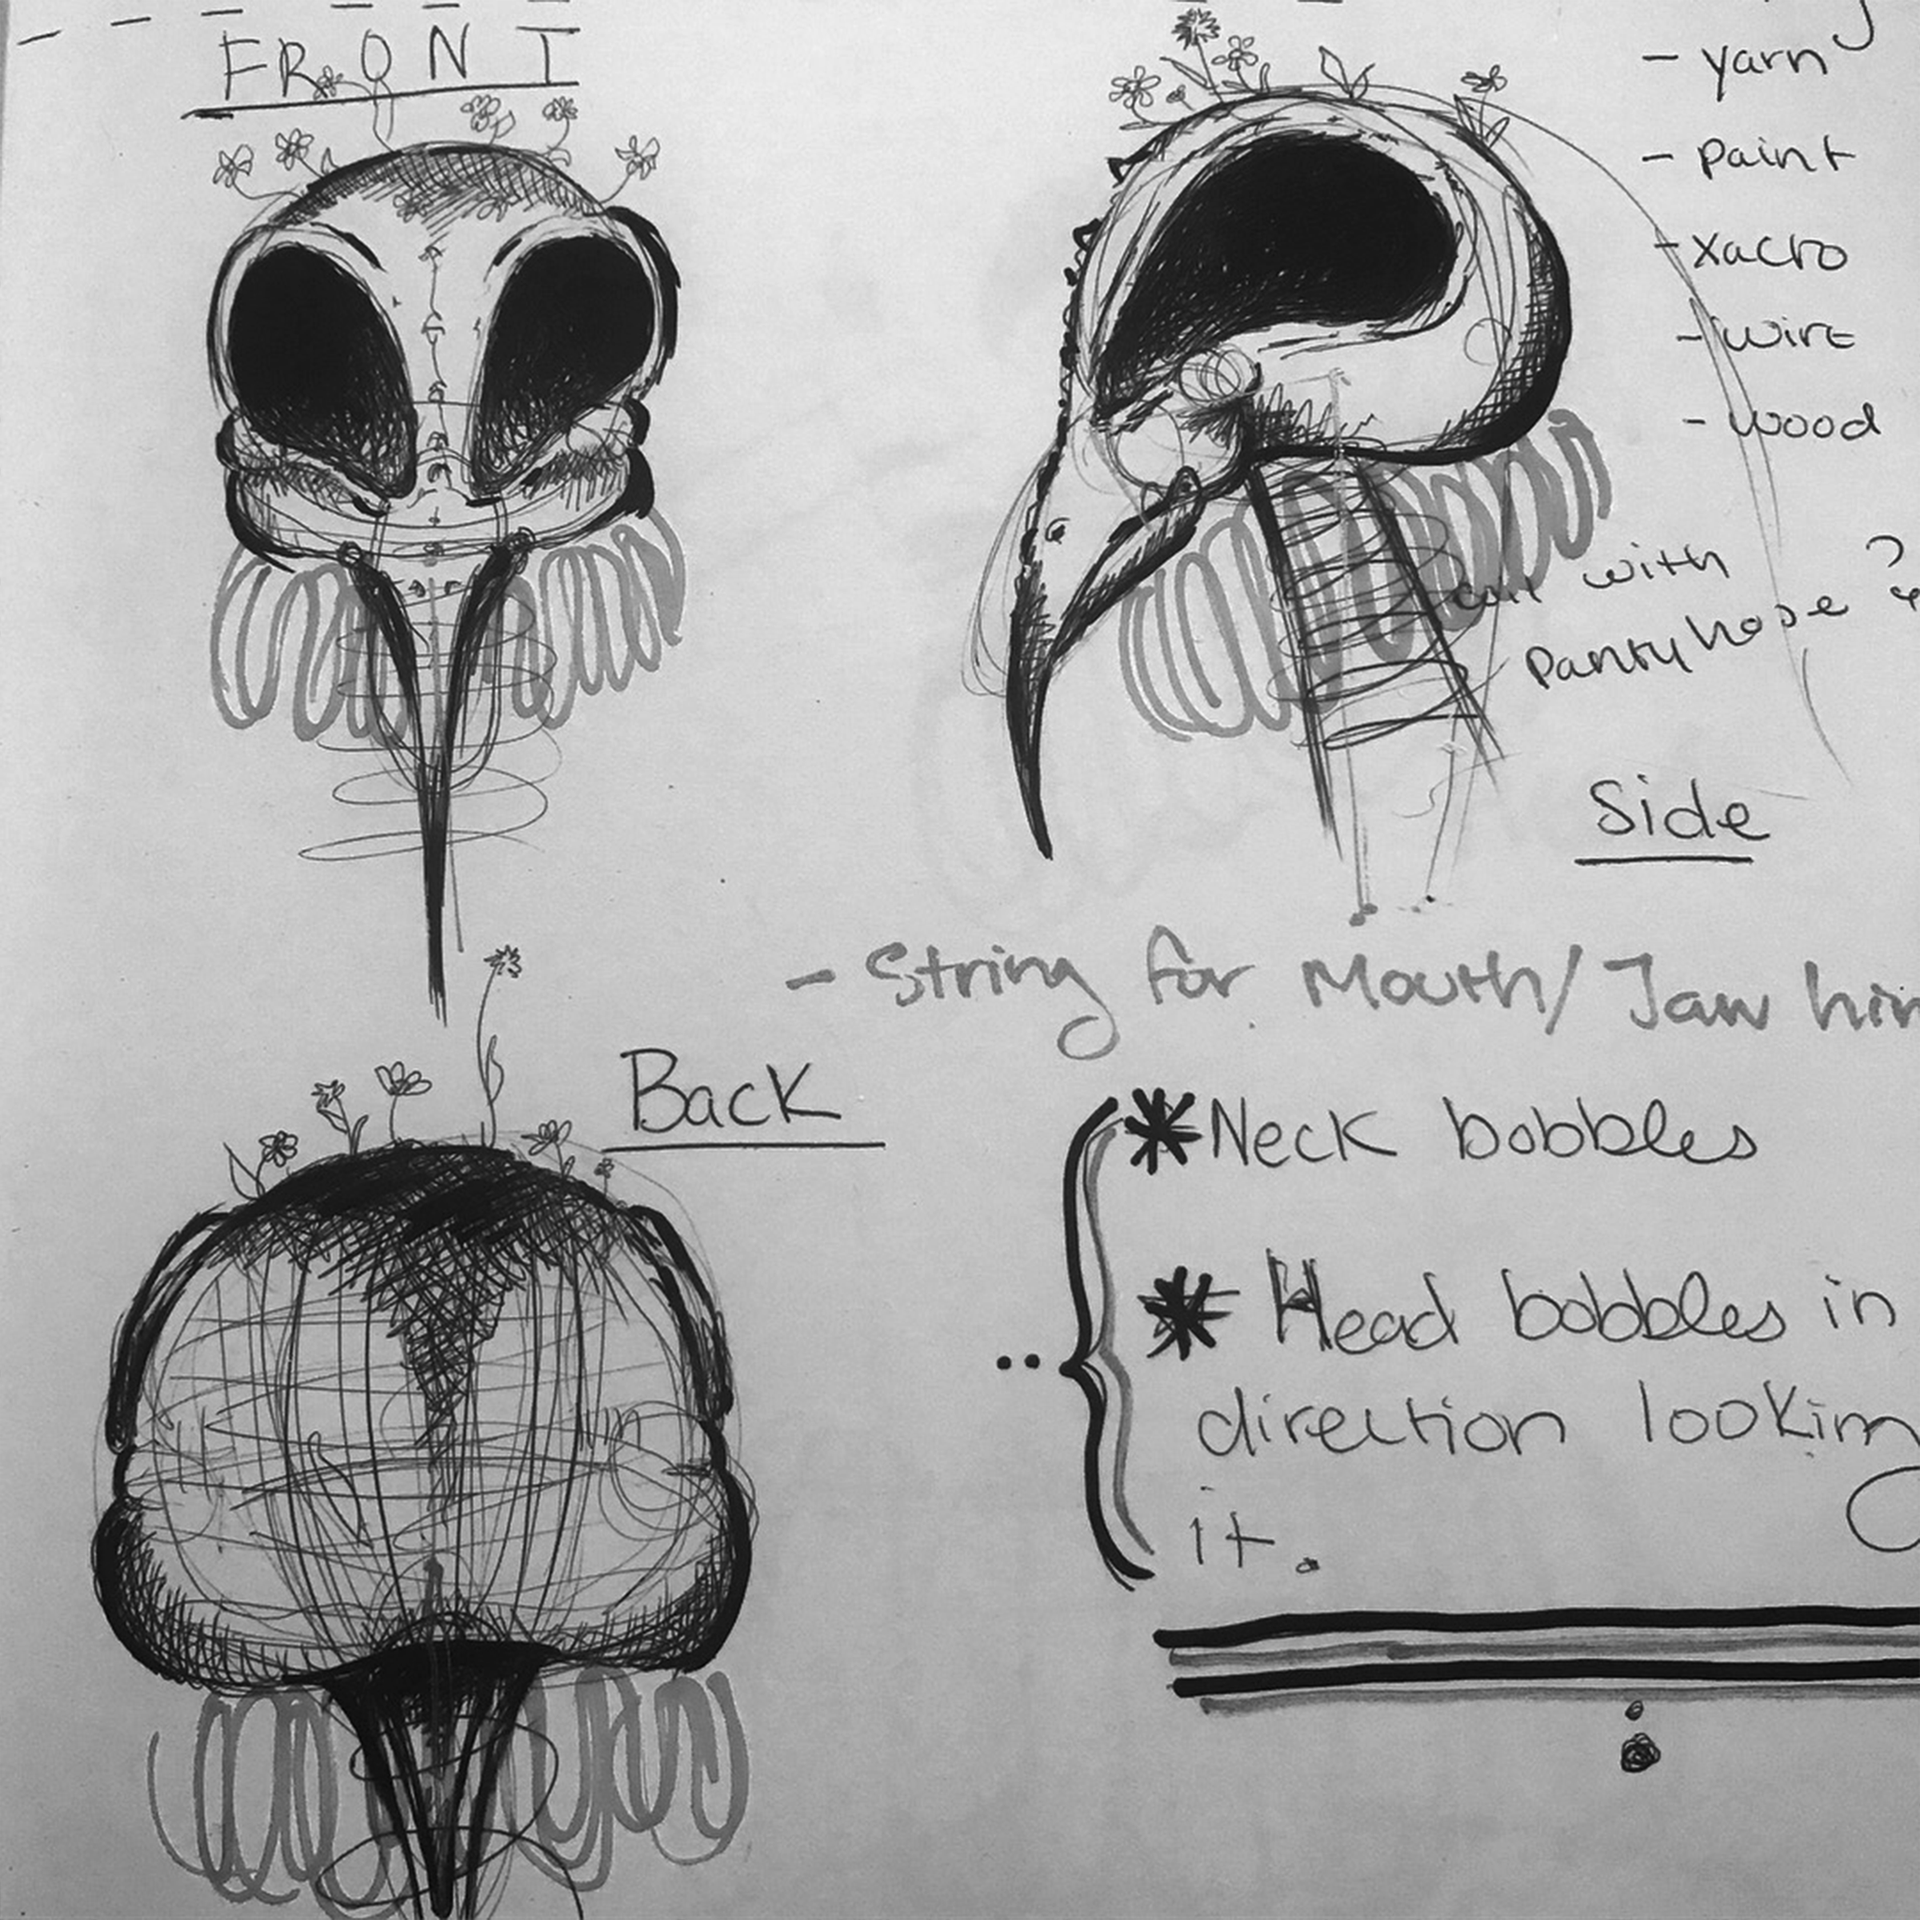 FRONT
- yarn
- paint
- xacto
- wire
- wood
coil with
Pantyhose ?
Side
- String for Mouth / Jaw hin
Back
* Neck bobbles
* Head bobbles in
direction looking
it.